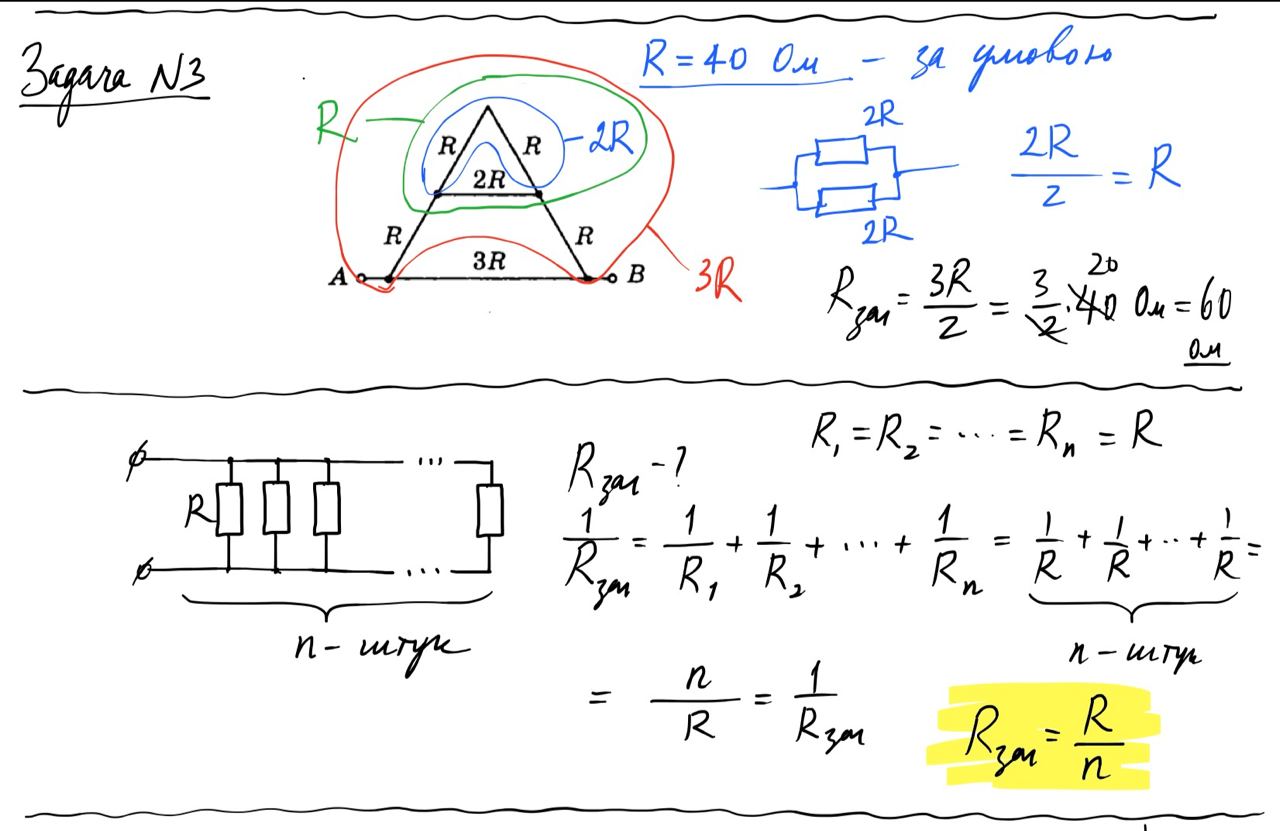 Задача N3
R = 40 Ом - за умовою
R
R
R
2R
2R
R
R
3R
A
B
3R
2R
2R
2R/2 = R
Rзаг = 3R/2 = 3/2 · 40 20 Ом = 60 Ом
R₁ = R₂ = ... = Rₙ = R
Rзаг - ?
R
...
...
n - штук
1/Rзаг = 1/R₁ + 1/R₂ + ... + 1/Rₙ = 1/R + 1/R + ... + 1/R =
n - штук
= n/R = 1/Rзаг
Rзаг = R/n